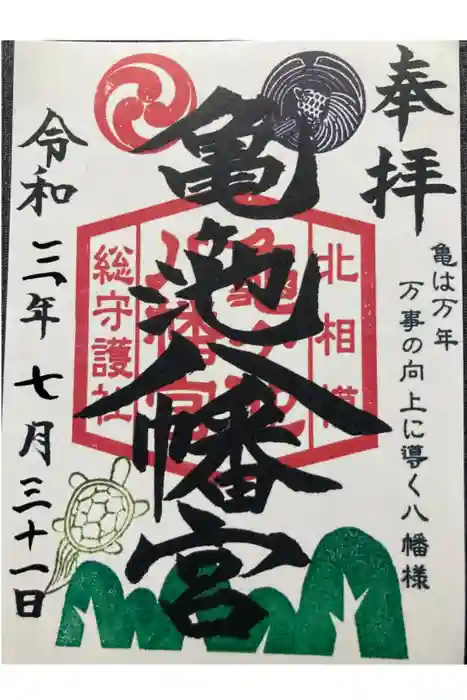 奉拝
亀は万年
万事の向上に導く八幡様
亀池八幡宮
北相模
亀の池
八幡宮
総守護社
令和三年七月三十一日